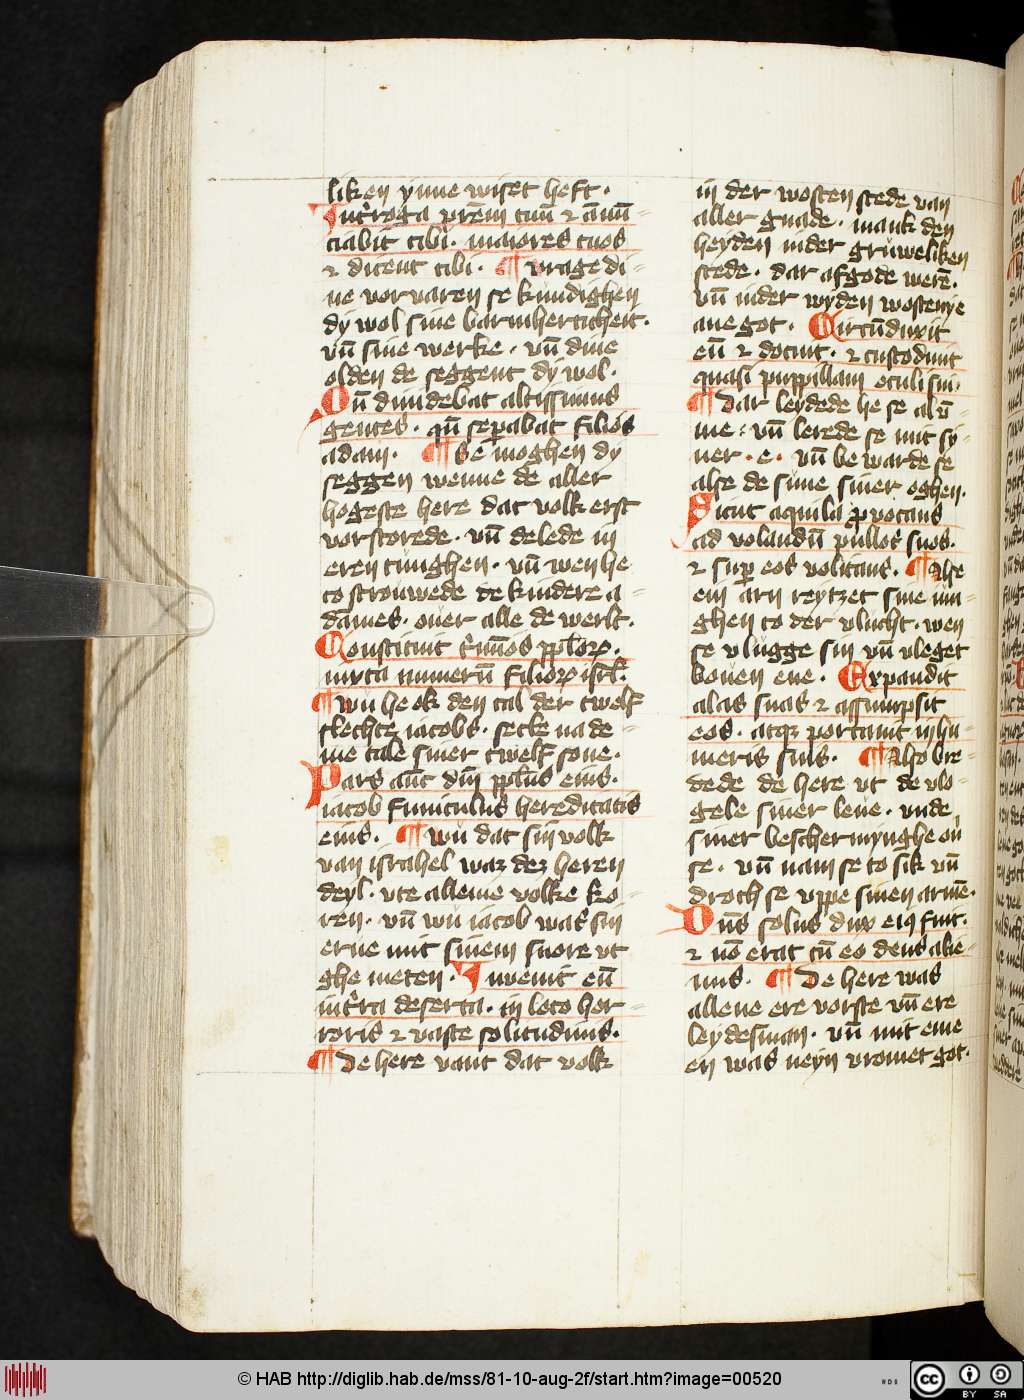 liken ynne wiset heft ·
Int̄roga pr̄em tuū ⁊ anū=
ciabit tibi · maiores tuos
⁊ dicent tibi · ¶ vrage di=
ne vorvaren se kundighen
dy wol sine barmherticheit ·
vn̄ sine werke · vn̄ dine
olden de seggent dy wol ·
Qn̄ diuidebat altissimus
gentes · qn̄ seꝑabat filios
adam · ¶ Se moghen dy
seggen wenne de aller
hogeste here dat volk erst
vorstorede · vn̄ delede in
eren tunghen · vn̄ wen he
to strouwede de kindere a=
dames · ouer alle de werlt ·
Constituit t̄mīos pplōꝝ ·
iuxta numerū filioꝝ isrl̄ ·
¶ wu he ok den tal der twolf
slechte iacobs · sette na de=
me tale siner twelf sone ·
Pars aūt dn̄i ppl̄us eius ·
iacob funiculus hereditatis
eius · ¶ wu dat sin volk
van israhel waz dez heren
deyl · vte alleme volke ko=
ren · vn̄ wu iacob was sin
erue mit sinem snore vt
ghe meten · Inuenit eū
in t̄ra deserta · in loco hor=
roris ⁊ vaste solitudinis ·
¶ De here vant dat volk
in der wosten stede van
aller gnade · mank den
heyden in der gruweliken
stede · dar afgode werē ·
vn̄ in der wyden wostenye
ane got · Circūduxit
eū ⁊ docuit · ⁊ custodiuit
quasi pupillam oculi sui ·
¶ Dar leydede he se al v̄=
me : vn̄ lerede se mit sy=
ner · e · vn̄ be warde se
alse de sune siner oghen ·
Sicut aquila ꝓuocans
ad volandū pullos suos ·
⁊ suꝑ eos volitans · ¶ Alse
ein arn reytzet sine iun=
ghen to der vlucht · wen
se vlugge sin vn̄ vleget
bouen ene · Expandit
alas suas ⁊ assumpsit
eos · atqꝫ portauit in hu=
meris suis · ¶ Also bre=
dede de here vt de vlo=
gele siner leue · vnde
siner beschermynghe ou̅
se · vn̄ nam se to sik vn̄
droch se vppe sinen armē ·
Dn̄s solus dux eiꝯ fuit ·
⁊ nō erat cū eo deus alie=
nus · ¶ De here was
allene ere vorste vn̄ ere
leydesman · vn̄ mit eme
en was neyn vromet got ·
© HAB http://diglib.hab.de/mss/81-10-aug-2f/start.htm?image=00520
cc BY SA